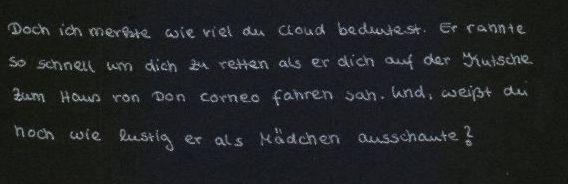 Doch ich merkte wie viel du Cloud bedeutest. Er rannte
so schnell um dich zu retten als er dich auf der Kutsche
zum Haus von Don Corneo fahren sah. Und, weißt du
noch wie lustig er als Mädchen ausschaute?